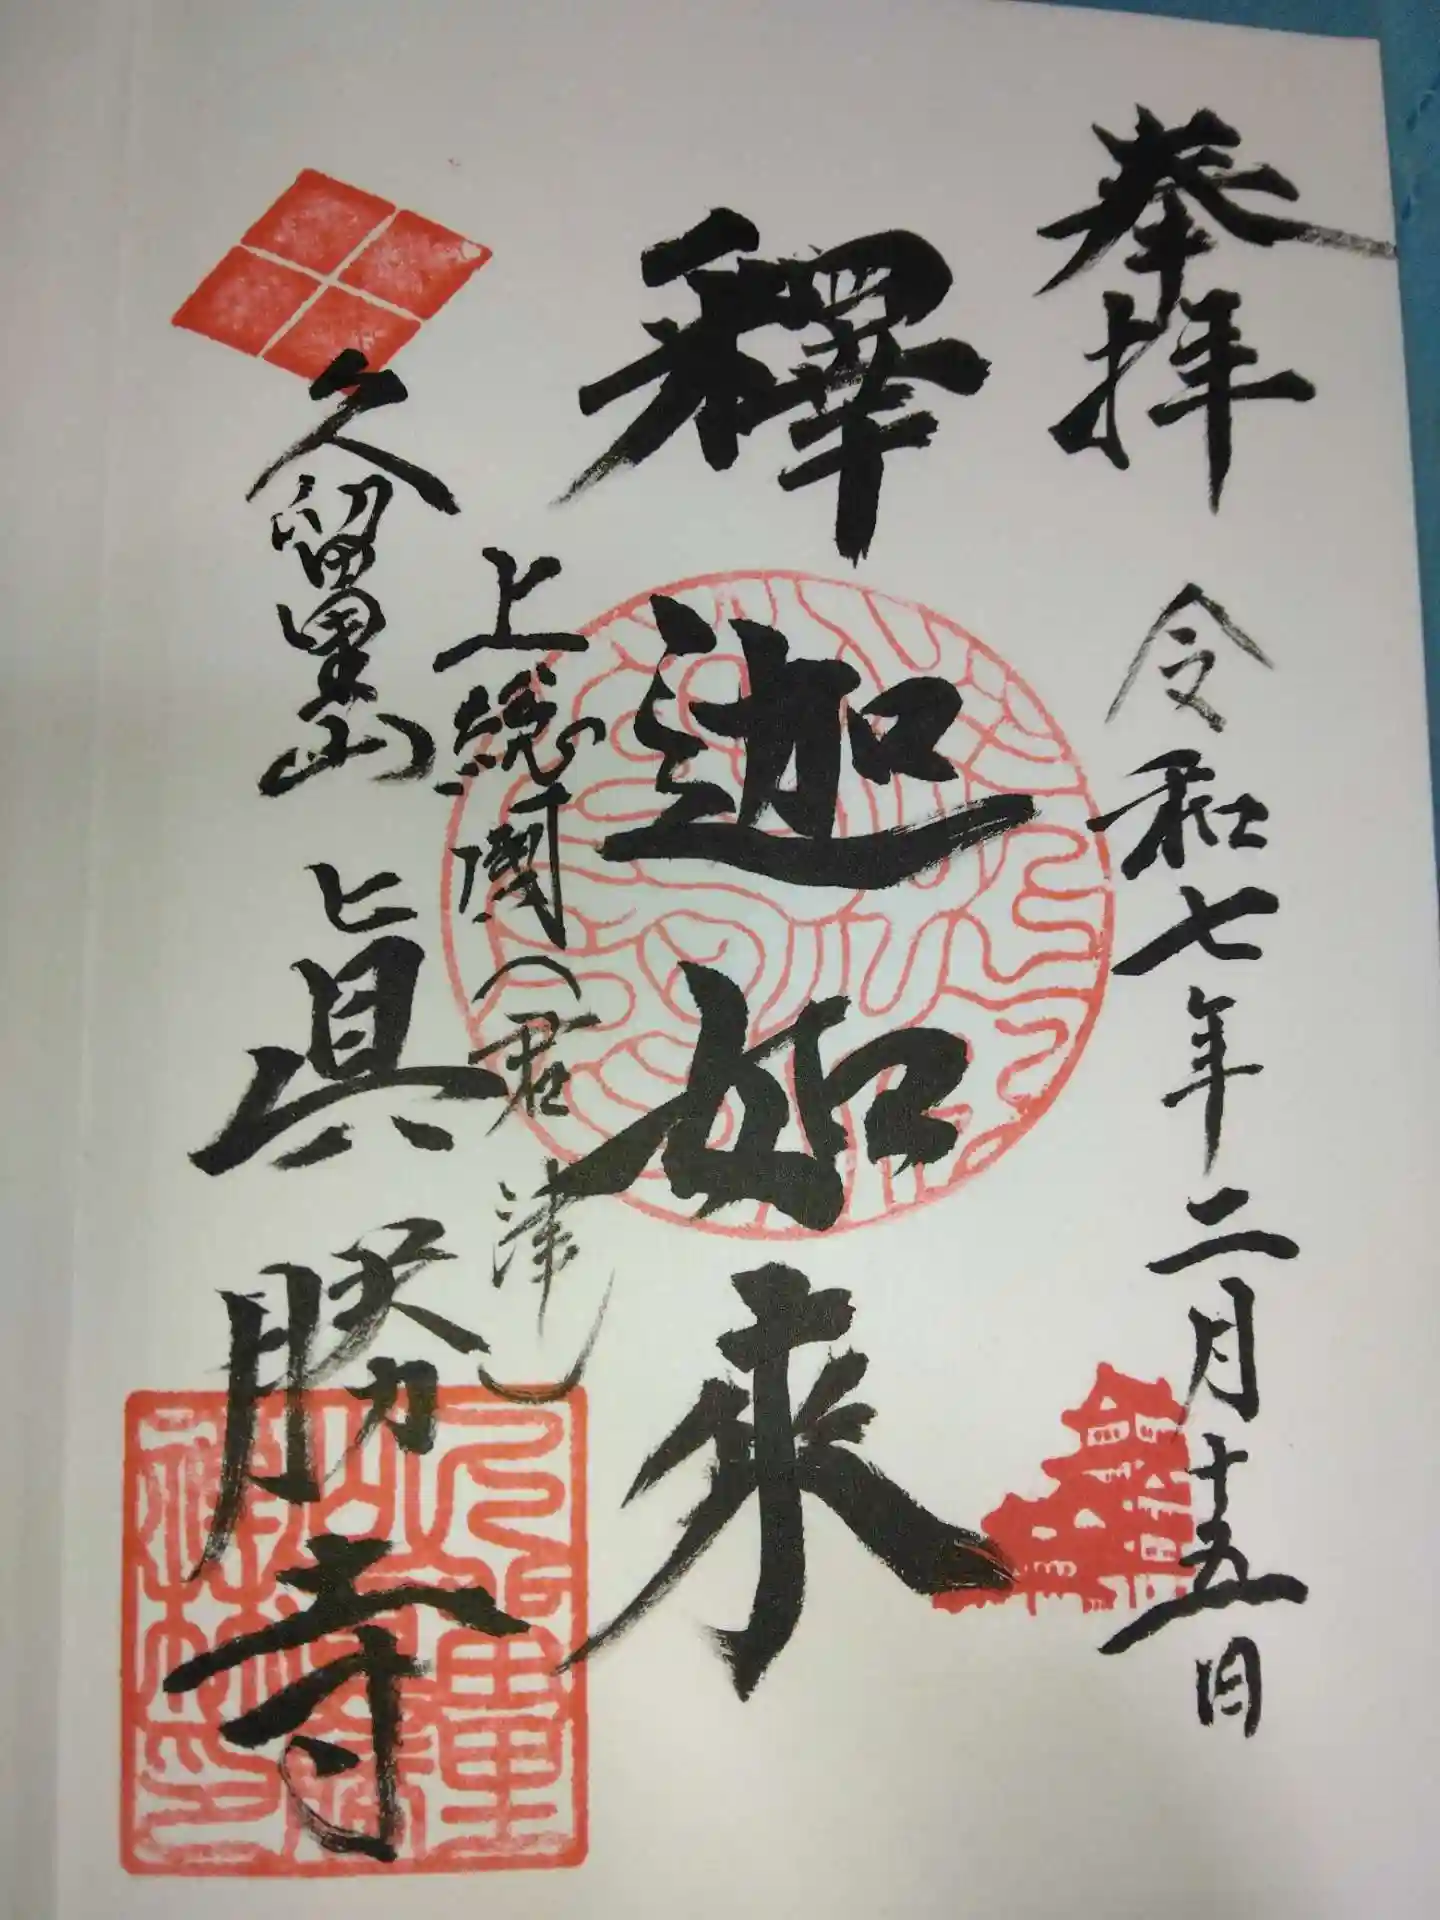 奉拝
令和七年二月十五日
釋迦如来
上総國（君津）
久留里山
眞勝寺